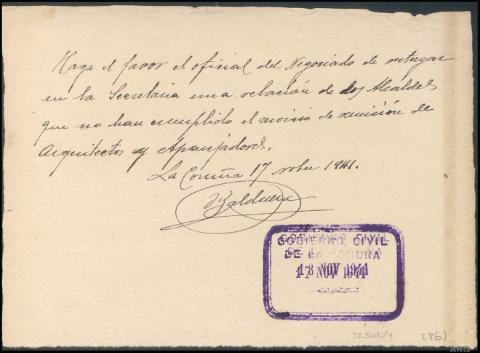 Haga el favor el oficial del Negociado de entregar
en la Secretaria una relación de los Alcaldes
que no han cumplido el servicio de remisión de
Arquitectos y Aparejadores.
La Coruña 17 nobre 1941.
GOBIERNO CIVIL
DE LA CORUÑA
NOV 1941